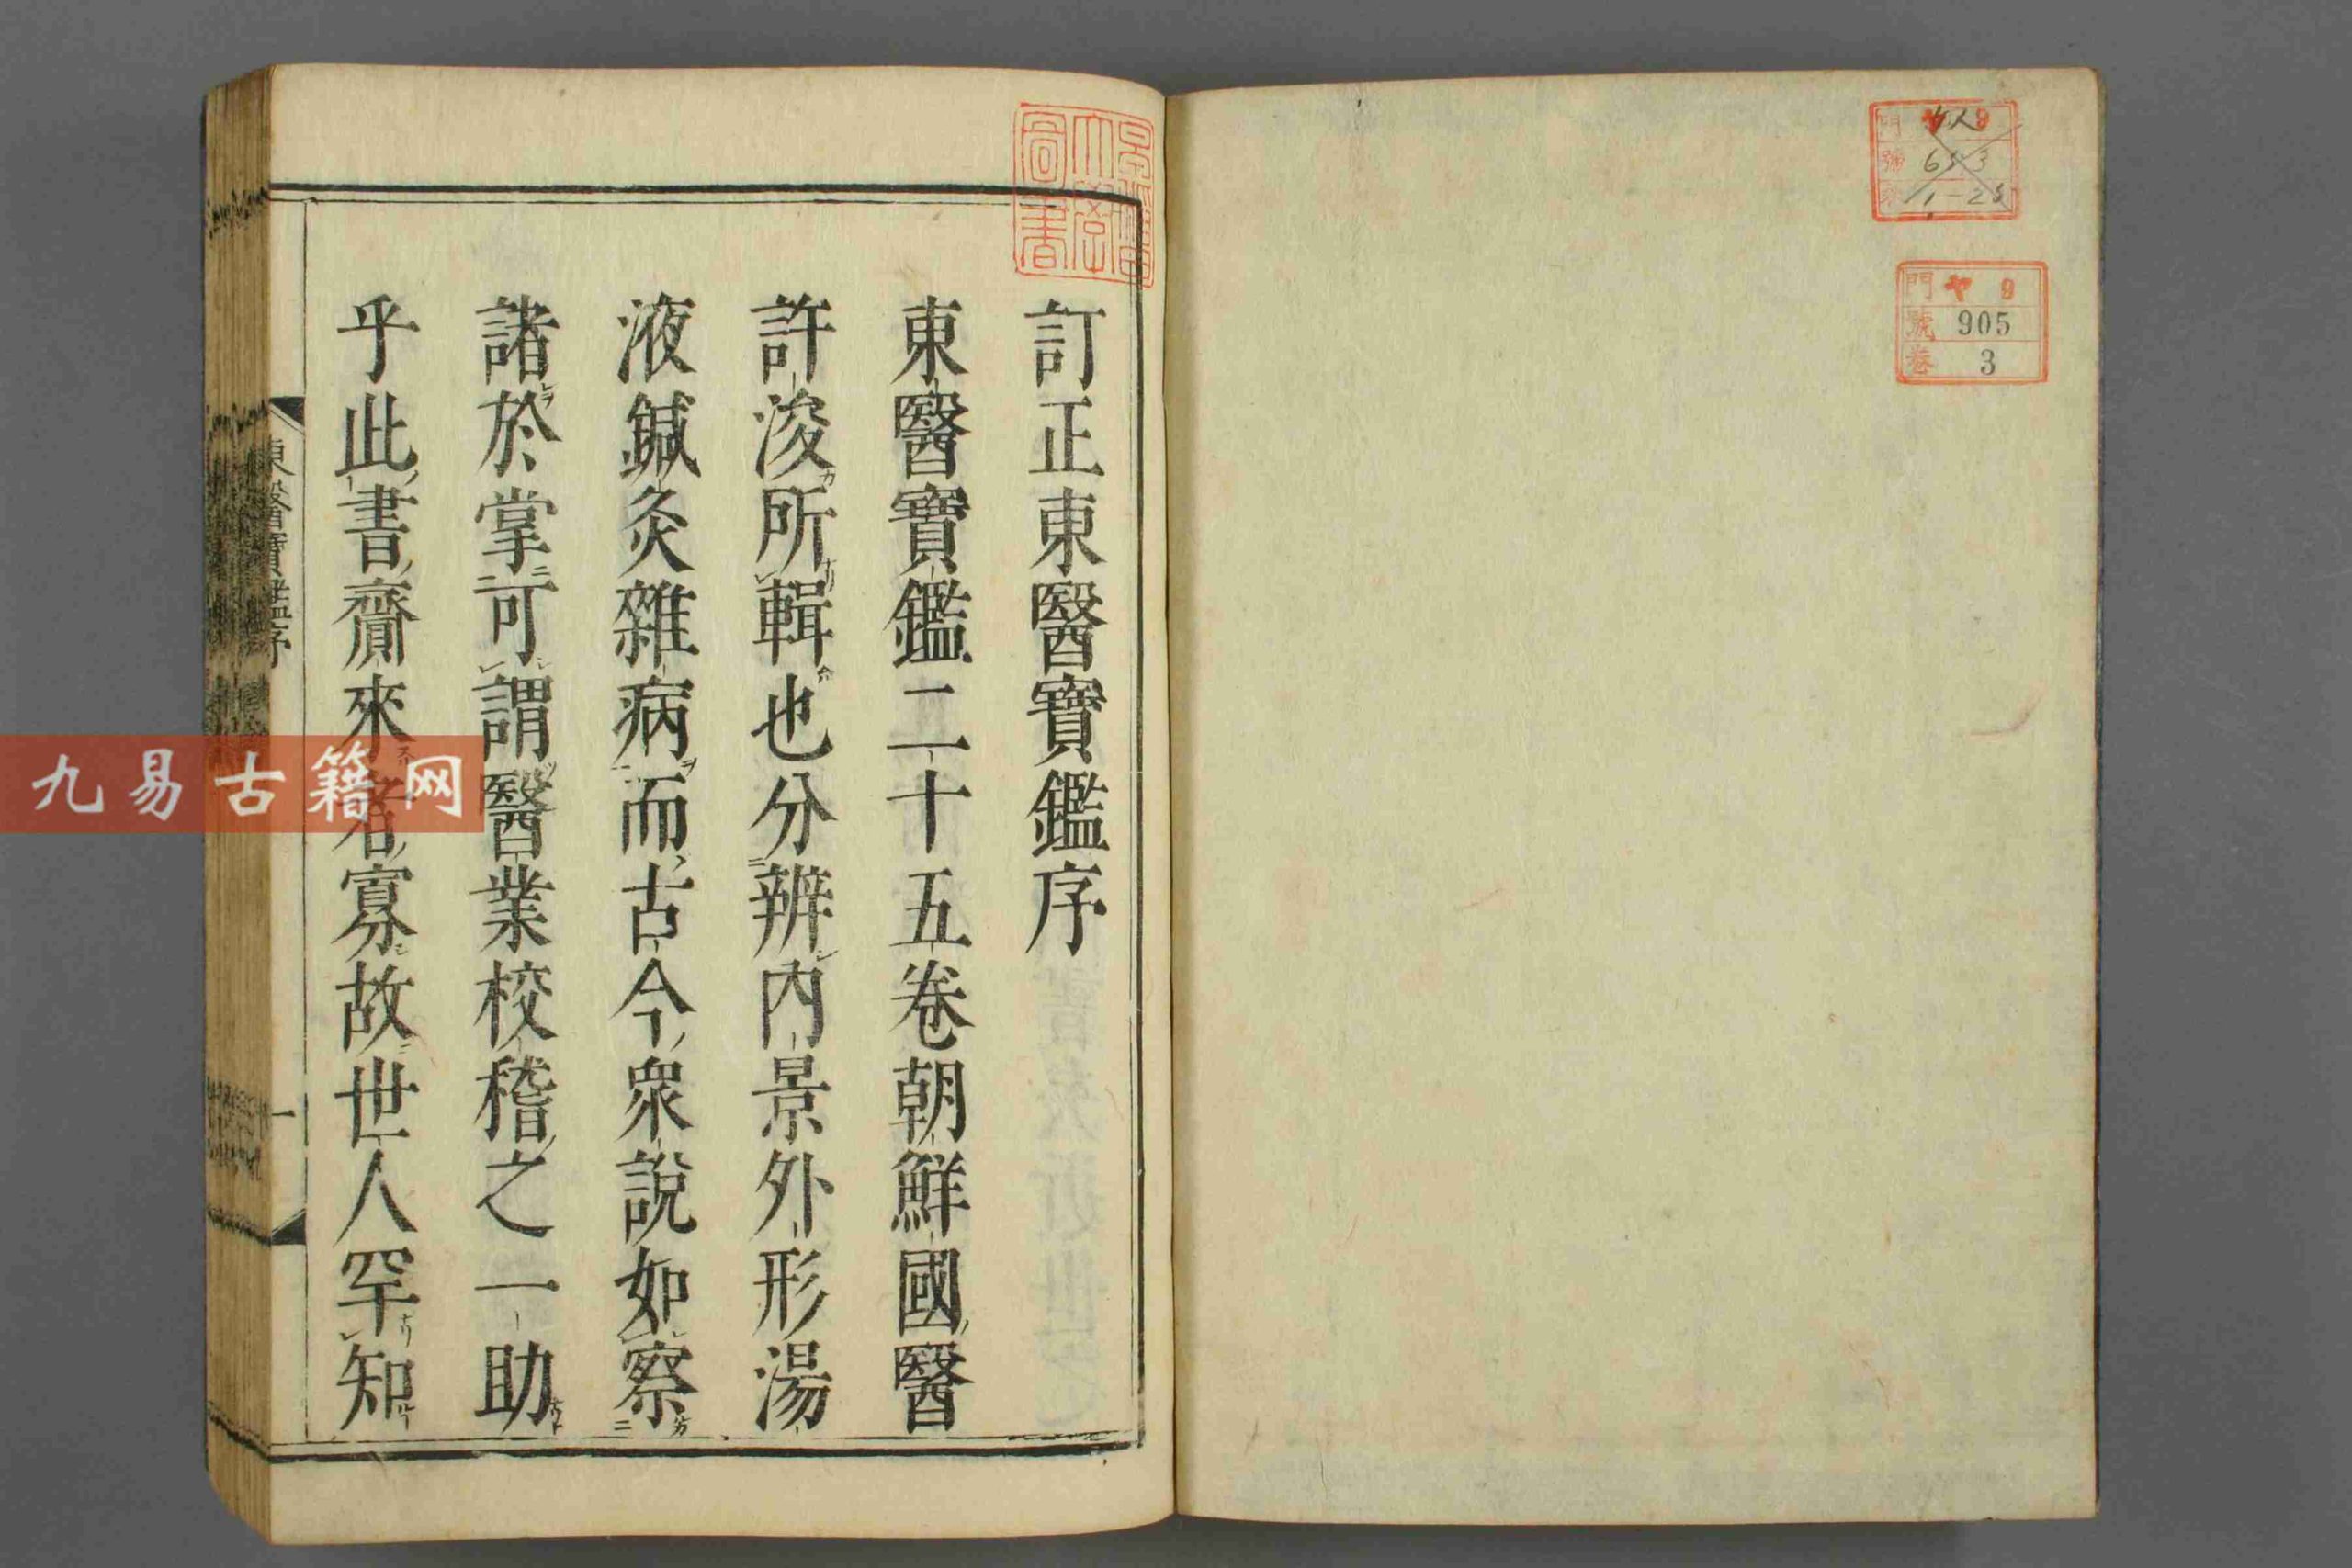 訂正東醫寶鑑序
東醫寶鑑二十五卷朝鮮國醫
許浚所輯也分辨內景外形湯
液鍼灸雜病而古今衆說如察
諸於掌可謂醫業校稽之一助
乎此書齎來者寡故世人罕知
東醫寶鑑序
一
早稲田大學圖書
門 ヤ 9
號 653
卷 1-25
門 ヤ 9
號 905
卷 3
九易古籍网